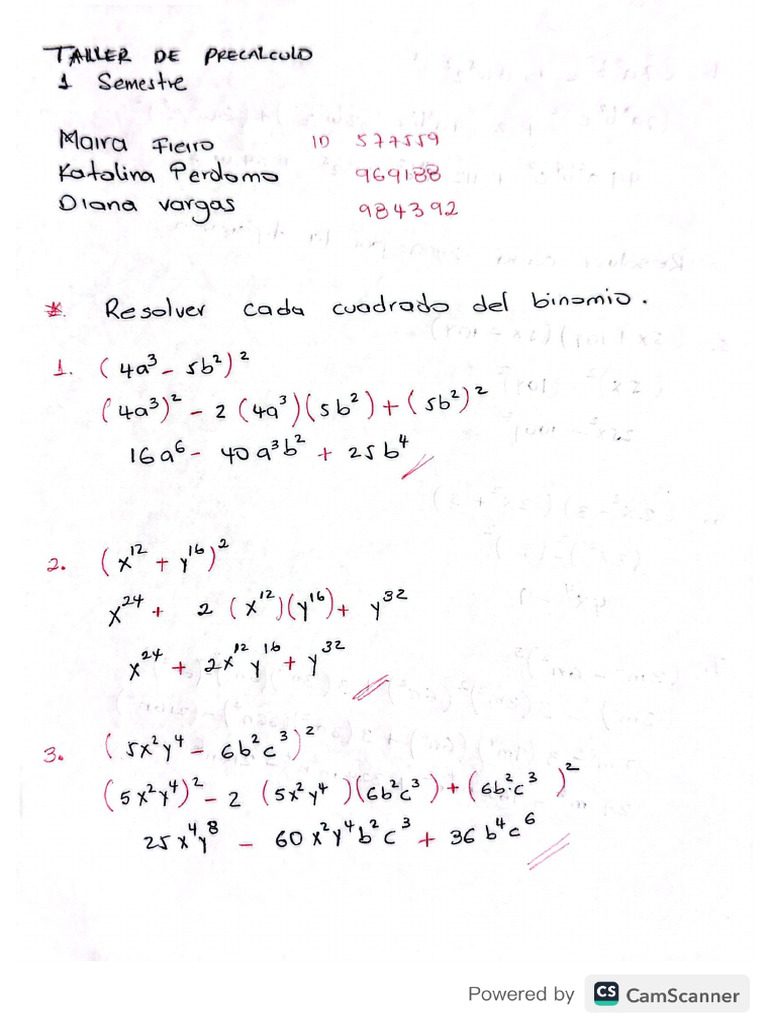 TALLER DE PRECALCULO
1 Semestre
Maira Fierro ID 577559
Katalina Perdomo 969188
Diana vargas 984392
* Resolver cada cuadrado del binomio.
1. (4a³ - 5b²)²
(4a³)² - 2 (4a³)(5b²) + (5b²)²
16a⁶ - 40a³b² + 25b⁴
2. (x¹² + y¹⁶)²
x²⁴ + 2 (x¹²)(y¹⁶) + y³²
x²⁴ + 2x¹²y¹⁶ + y³²
3. (5x²y⁴ - 6b²c³)²
(5x²y⁴)² - 2 (5x²y⁴)(6b²c³) + (6b²c³)²
25x⁴y⁸ - 60x²y⁴b²c³ + 36b⁴c⁶
Powered by CS CamScanner